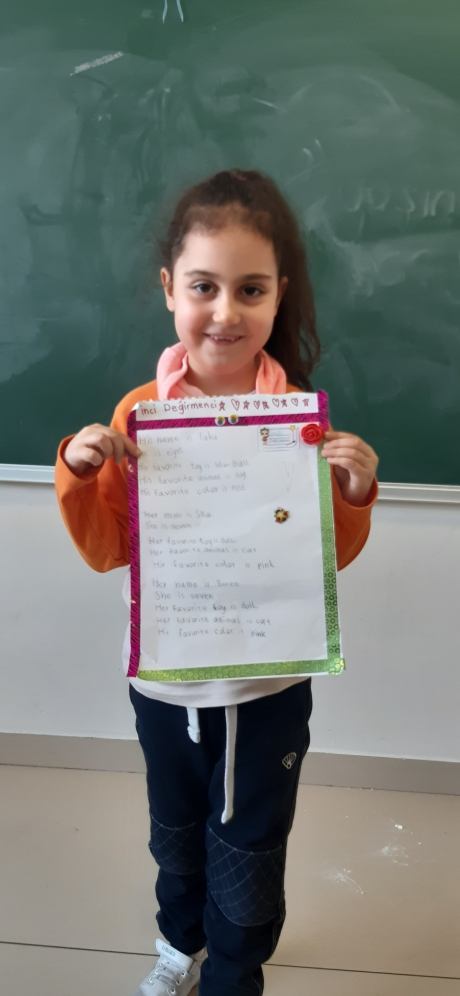 inci Değirmenci
His name is Luka
is eight
His favorite toy is
His favorite animal is dog
His favorite color is red
Her name is
She is seven
Her favorite toy is doll
Her favorite animas is cat
Hir favorite color is pink
Her name is
She is seven
Her favorite toy is doll
Her favorite animas is cat
Hir favorite color is pink